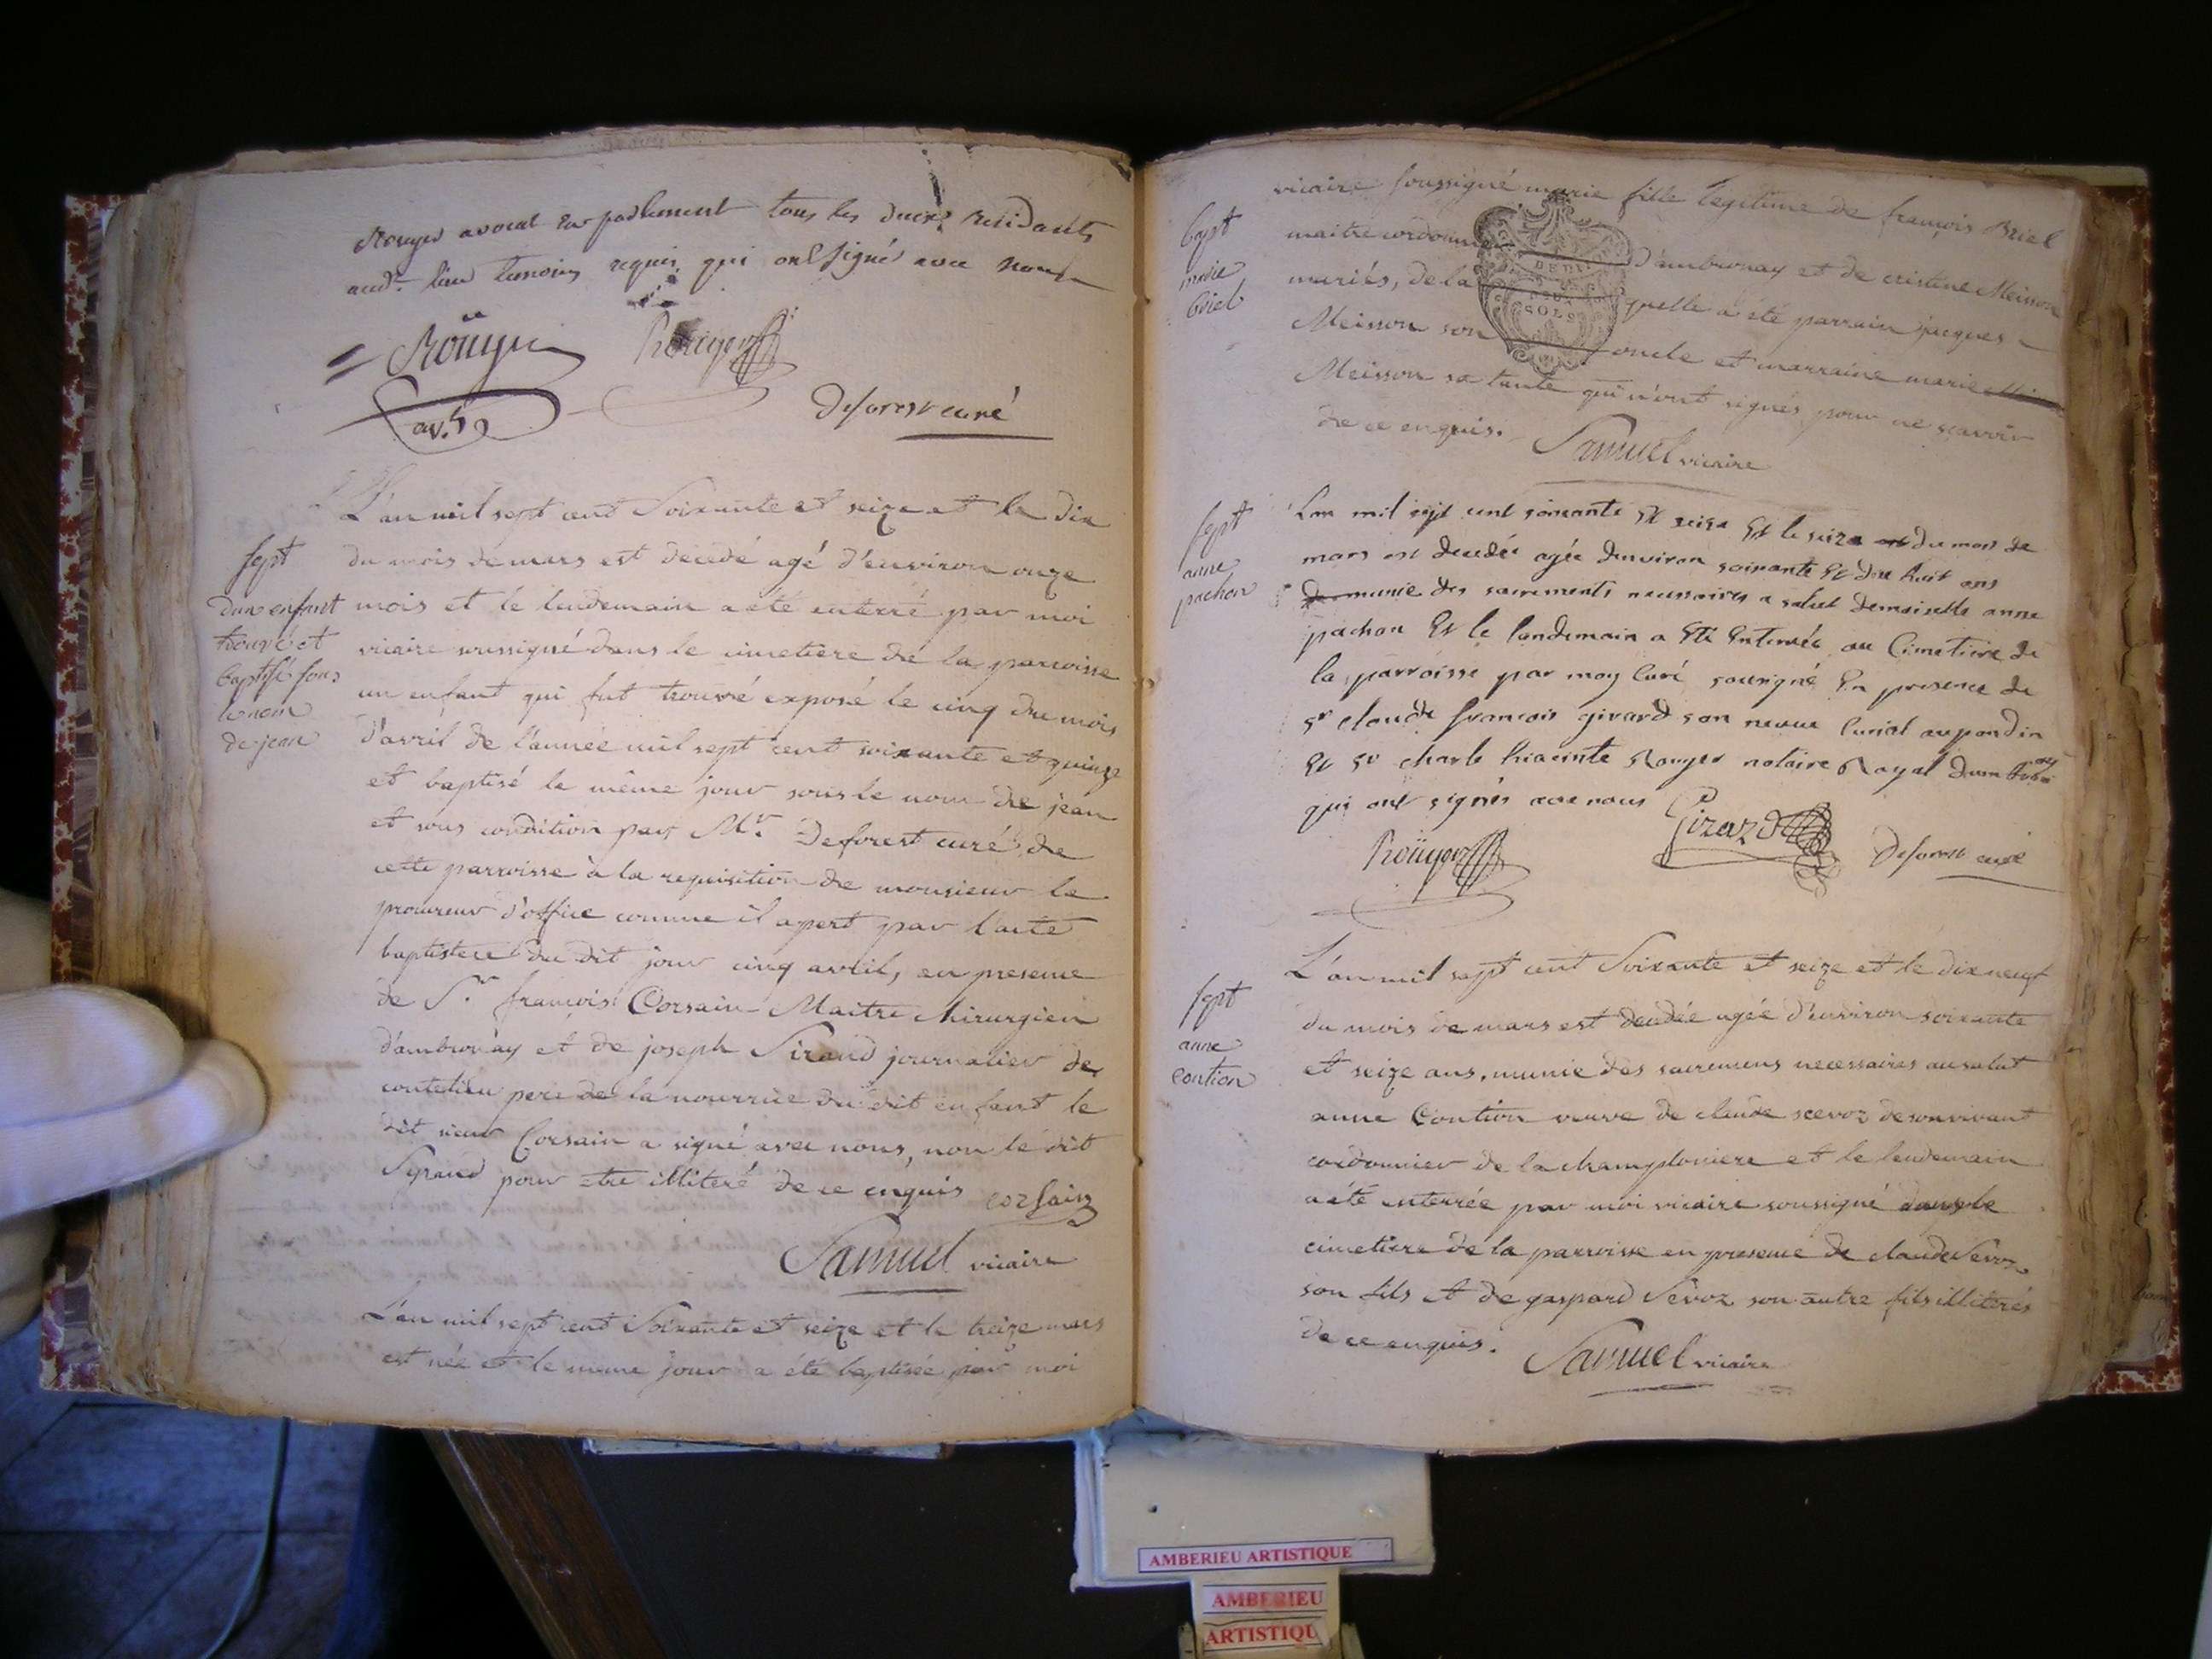 Rouyer avocat en parlement tous les deux residants
aud.t lieu temoins requis qui ont signé avec nous
Roüyer
av.t
Roüyer
Deforest curé
L'an mil sept cent Soixante et seize et le dix
du mois de mars est décedé agé d'environ onze
mois et le lendemain a été enterré par moi
vicaire soussigné dans le cimetiere de la parroisse
un enfant qui fut trouvé exposé le cinq du mois
d'avril de l'année mil sept cent soixante et quinze
et baptisé le même jour sous le nom de jean
et sous condition par Mr. Deforest curé de
cette parroisse à la requisition de monsieur le
procureur d'office comme il apert par l'acte
baptistere du dit jour cinq avril, en presence
de Sr. françois Corsain Maitre chirurgien
d'ambronay et de joseph Siraud journalier de
coutelieu pere de la nourrice du dit enfant le
dit sieur Corsain a signé avec nous, non le dit
Siraud pour etre illiteré de ce enquis corsain
Samuel vicaire
L'an mil sept cent Soixante et seize et le treize mars
est née et le meme jour a été baptisée par moi
sept
d'un enfant
trouvé et
baptisé sous
le nom
de jean
vicaire soussigné marie fille legitime de françois Briel
maitre cordonnier d'ambronay et de cristine Meisson
mariés, de laquelle a été parrain jacques
Meisson son oncle et marraine marie
Meisson sa tante qui n'ont signés pour ne scavoir
de ce enquis. Samuel vicaire
bapt
marie
briel
DEUX
SOLS
L'an mil sept cent soixante et seize et le seize du mois de
mars est decedée agée denviron soixante et dix huit ans
munie des sacrements necessaires a salut demoiselle anne
pachon et le landemain a été enterrée au cimetiere de
la parroisse par moy curé sousigné en presence de
sr claude francois girard son neveu curial aupondin
et sr charle hiacinte Rouyer notaire Royal dambronay
qui ont signés avec nous Girard
Roüyer
Deforest curé
sept
anne
pachon
L'an mil sept cent Soixante et seize et le dix neuf
du mois de mars est decedée agée d'environ soixante
et seize ans, munie des sacremens necessaires au salut
anne Contion veuve de claude scevoz de son vivant
cordonnier de la champloniere et le lendemain
a été enterrée par moi vicaire soussigné dans le
cimetiere de la parroisse en presence de claude Sevoz
son fils et de gaspard Sevoz son autre fils illiterés
de ce enquis. Samuel vicaire
sept
anne
contion
AMBERIEU ARTISTIQUE
AMBERIEU
ARTISTIQU